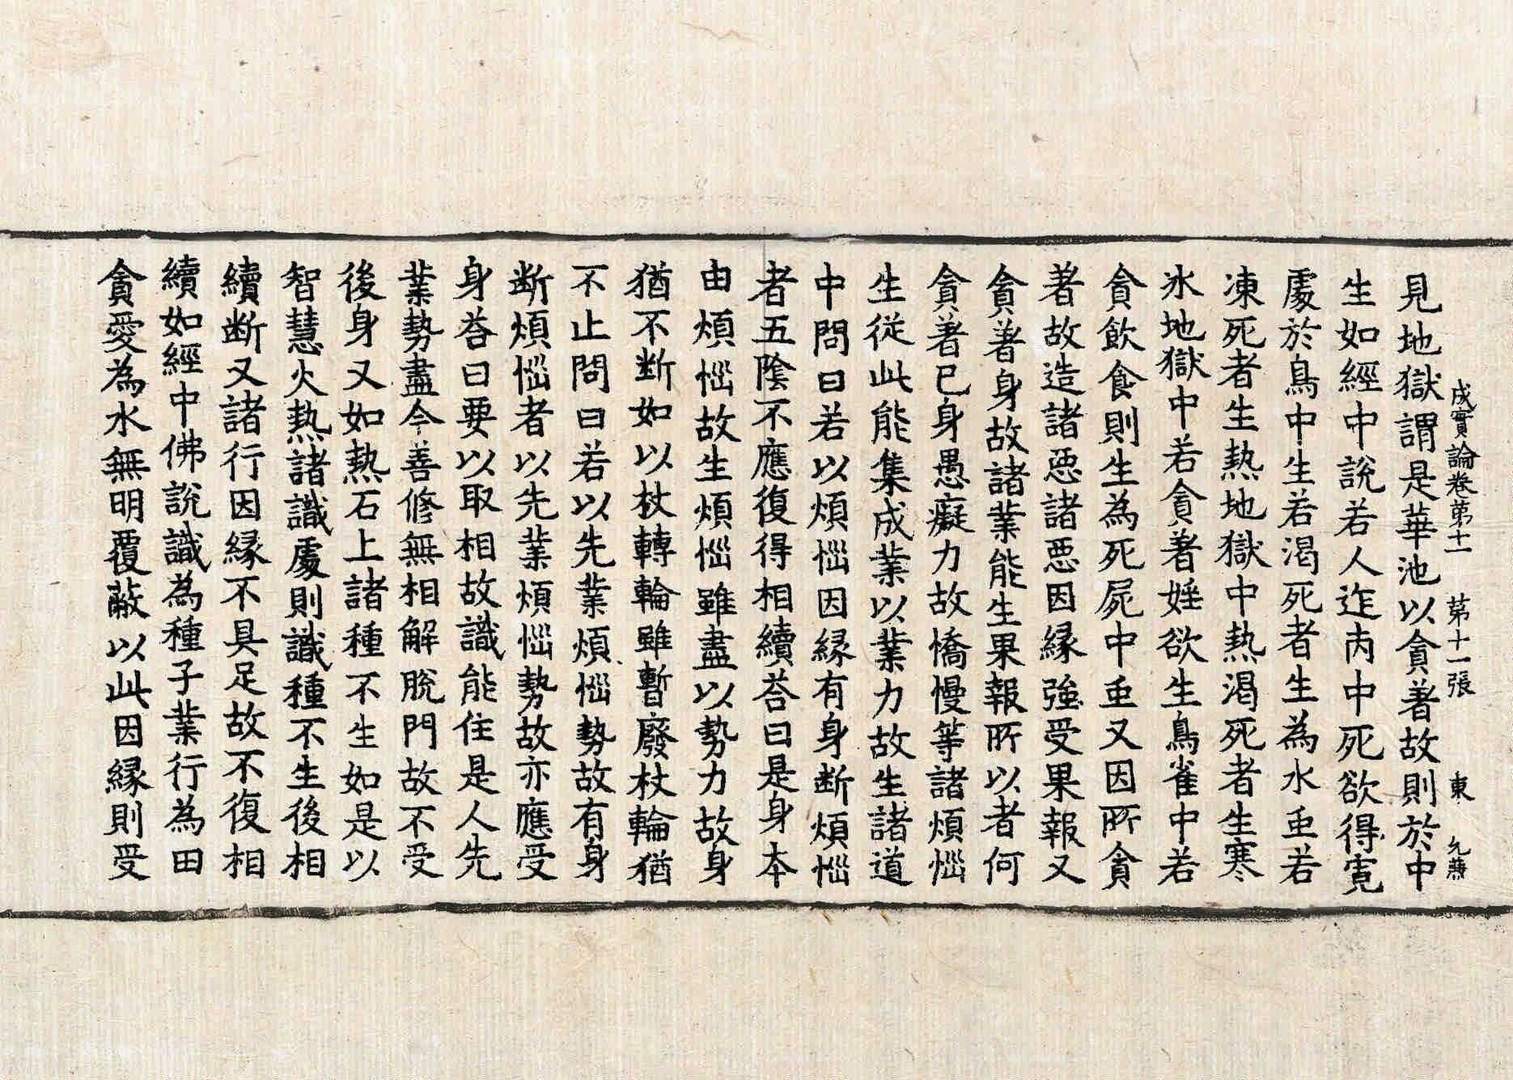 成實論卷第十一 第十一張 東 允茂
見地獄謂是華池以貪著故則於中
生如經中說若人迮內中死欲得寬
處於鳥中生若渴死者生為水䖝若
凍死者生熱地獄中熱渴死者生寒
氷地獄中若貪著婬欲生鳥雀中若
貪飲食則生為死屍中䖝又因所貪
著故造諸惡諸惡因縁強受果報又
貪著身故諸業能生果報所以者何
貪著已身愚癡力故憍慢等諸煩惱
生從此能集成業以業力故生諸道
中問曰若以煩惱因縁有身断煩惱
者五陰不應復得相續荅曰是身本
由煩惱故生煩惱雖盡以勢力故身
猶不断如以杖轉輪雖暫廢杖輪猶
不止問曰若以先業煩惱勢故有身
断煩惱者以先業煩惱勢故亦應受
身荅曰要以取相故識能住是人先
業勢盡今善修無相解脫門故不受
後身又如熱石上諸種不生如是以
智慧火熱諸識處則識種不生後相
續断又諸行因縁不具足故不復相
續如經中佛說識為種子業行為田
貪愛為水無明覆蔽以此因縁則受